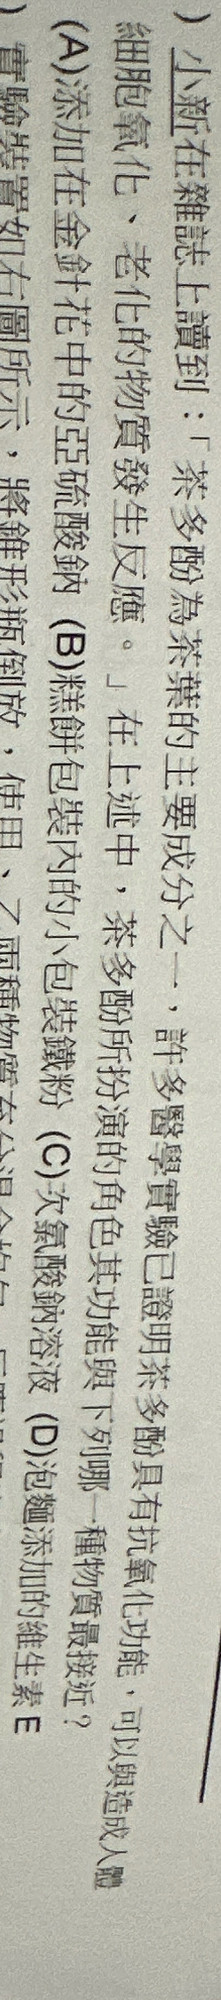 ) 小新在雜誌上讀到：「茶多酚為茶葉的主要成分之一，許多醫學實驗已證明茶多酚具有抗氧化功能，可以與造成人體
細胞氧化、老化的物質發生反應。」在上述中，茶多酚所扮演的角色其功能與下列哪一種物質最接近？
(A)添加在金針花中的亞硫酸鈉 (B)糕餅包裝內的小包裝鐵粉 (C)次氯酸鈉溶液 (D)泡麵添加的維生素E
) 實驗裝置如右圖所示，將錐形瓶倒放，使甲、乙兩種物質充分混合均勻